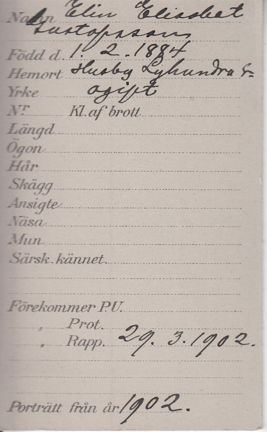 Namn Elin Elisabet
Gustafsson
Född d. 1. 2. 1884
Hemort Husby Lyhundra
Yrke ogift
Nr Kl. af brott
Längd
Ögon
Hår
Skägg
Ansigte
Näsa
Mun
Särsk. kännet.
Förekommer P.U.
„ Prot.
„ Rapp. 29. 3. 1902.
Porträtt från år 1902.